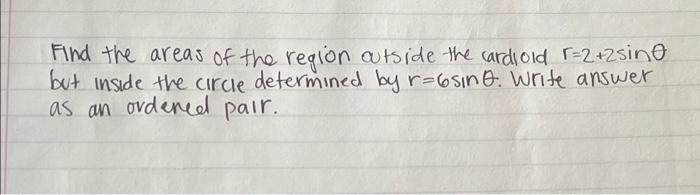 Find the areas of the region outside the cardioid r=2+2sinθ
but inside the circle determined by r=6sinθ. Write answer
as an ordered pair.